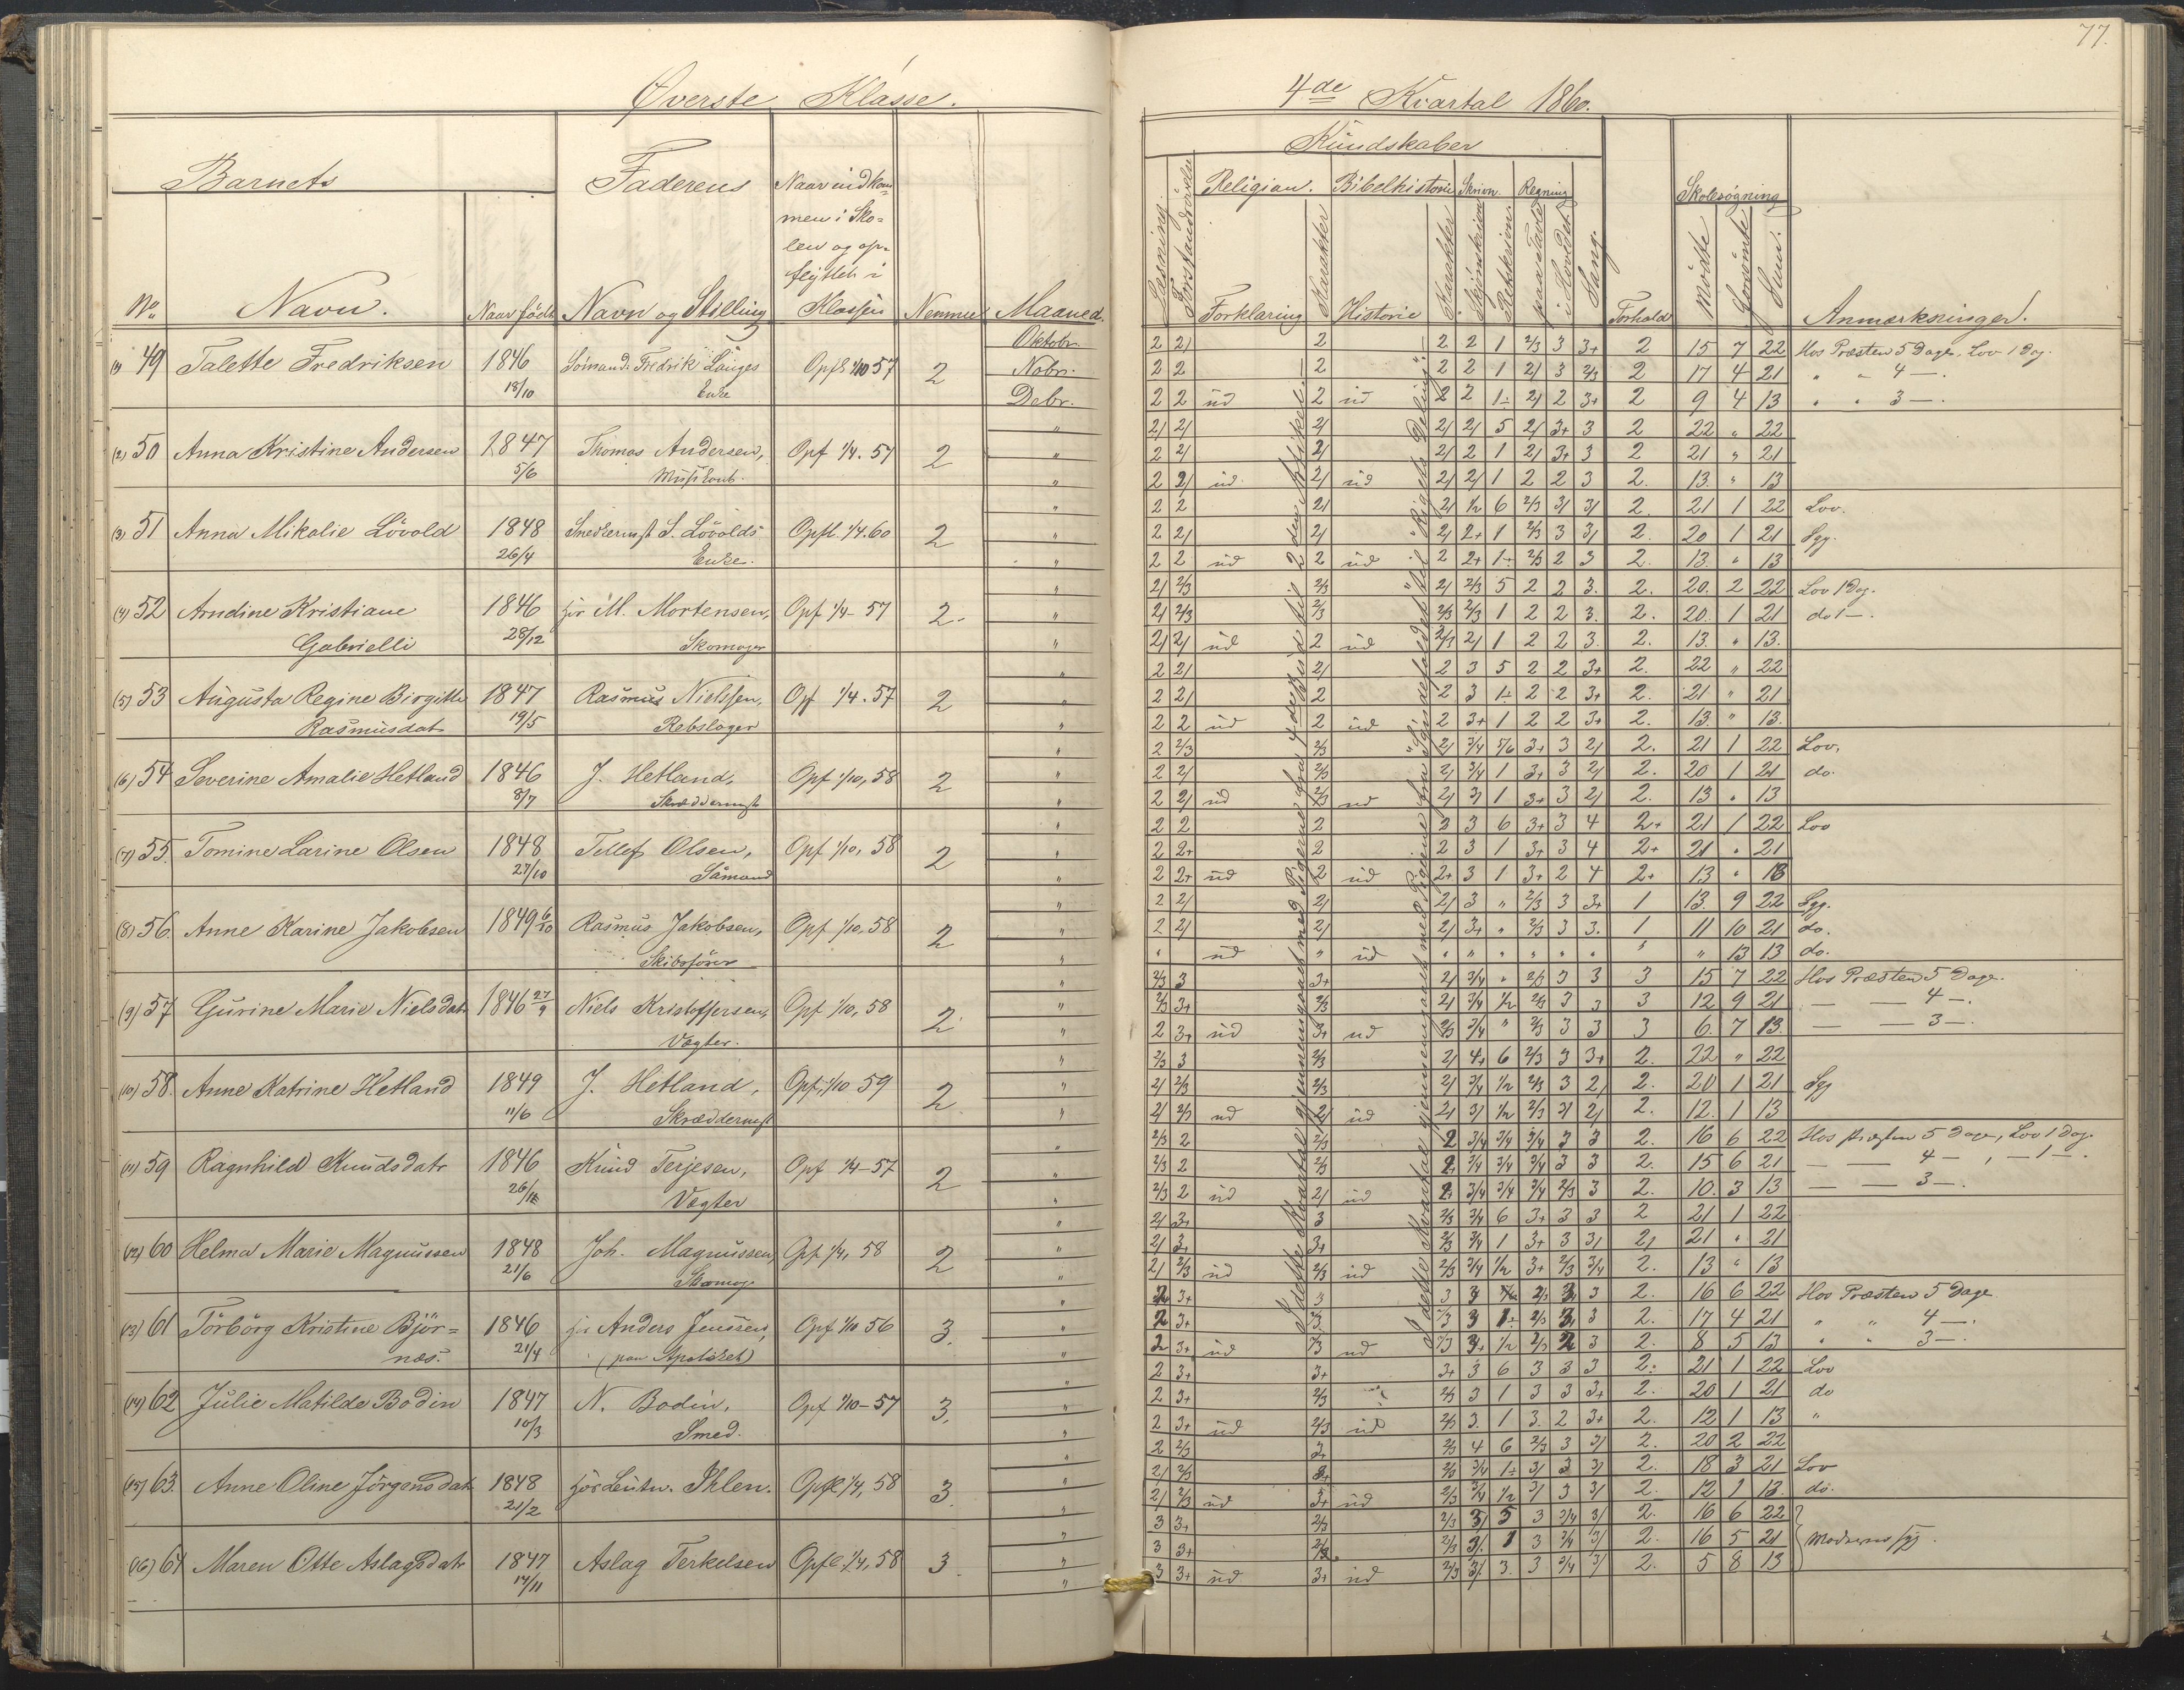 Øverste Klasse.
Barnets
Faderens
Naar indkom=
men i Sko=
len og op=
flyttet i
Klassen
No Navn. Naar født Navn og Stilling Nemme Maaned.
(1) 49 Talette Fredriksen 1846 18/10 Sømand Fredrik Langes Enke Opfl 1/10 57 2 Oktobr.
Nobr.
Debr.
(2) 50 Anna Kristine Andersen 1847 5/6 Thomas Andersen, Opf 1/4. 57 2
(3) 51 Anna Mikalie Lövold 1848 26/4 Smedkermst S. Lövolds Enke. Opfl. 1/4. 60 2
(4) 52 Arndine Kristiane 1846 28/12 for M. Mortensen, Opf 1/4 - 57 2
Gabrielli Skomager
(5) 53 Augusta Regine Birgitte 1847 19/5 Rasmus Nielssen, Opf 1/4. 57 2
Rasmusdatr Rebslager
(6) 54 Severine Amalie Hetland 1846 8/7 J. Hetland, Opf 1/10, 58 2
Skræddermst
(7) 55. Tomine Larine Olsen 1848 27/10 Tellef Olsen, Opf 1/10, 58 2
Sömand
(8) 56. Anne Karine Jakobsen 1849 6/10 Rasmus Jakobsen, Opf 1/10, 58 2
Skibsförer
(9) 57 Gurine Marie Nielsdatr 1846 27/9 Niels Kristoffersen, Opf 1/10, 58 2
Vægter.
(10) 58. Anne Katrine Hetland 1849 11/6 J. Hetland, Opf. 1/10 59 2
Skræddermst
(11) 59 Ragnhild Knudsdatr 1846 Knud Terjesen, Opf 1/4-57 2
Vægter
(12) 60 Helma Marie Magnussen 1848 21/6 Joh. Magnussen, Opf. 1/4, 58 2
Skomag.
(13) 61 Törbörg Kristine Björ= 1846 21/4 Anders Jenssen, Opf 1/10 56 3.
næs. (paa Apoteket)
(14) 62 Julie Matilde Bodin 1847 10/3 N. Bodin, Opf 1/10-57 3.
Smed.
(15) 63. Anne Oline Jörgensdatr 1848 21/2 for Leutn. Ihlen. Opfl 1/4, 58 3.
(16) 64 Maren Otte Aslagsdatr 1847 14/11 Aslag Terkelsen Opfl. 1/4, 58 3.
77.
4de Kvartal 1860.
Kundskaber
Læsning.
Forstandsövelse
Religion. Bibelhistorie Skrivn. Regning
Forklaring Karakter Historie Karakter
Skjönskrivn
Retskrivn.
paa Tavle
i Hovedet
Sang.
Forhold
Skolesögning
Mödte
Forsömte
Sum.
Anmærkninger.
2 2/ 2 2 2 1 2/3 3 3+ 2 15 7 22 Hos Præsten 5 Dage. Lov 1 Dag.
2 2 2 2 2 1 2/ 3 2/3 2 17 4 21 " " 4 -.
2 2 ud 2 ud 2 2 1÷ 2/ 2 3+ 2 9 4 13 " " 3 -.
2/ 2/ 2/ 2/ 2/ 5 2/ 3+ 3 2 22 " 22
2 2/ 2/ 2/ 2 1 2/ 3+ 3 2 21 " 21
2 2/ ud 2/ ud 2/ 2/ 1 2 2 3 2. 13. " 13
2 2 2/ 2/ 1/2 6 2/3 3/ 3/ 2. 21 1 22 Lov.
2 2/ 2/ 2/ 2+ 1 2/3 3 3/ 2. 20 1 21 Syg.
2 2 ud 2 ud 2 2+ 1÷ 2/3 2 3 2. 13. " 13
2/ 2/3 2/3 2/ 2/3 5 2 2 3. 2. 20. 2 22 Lov 1 Dag.
2/ 2/3 2/3 2/3 2/3 1 2 2 3. 2. 20. 1 21 do 1 -.
2/ 2/ ud 2 ud 2/3 2/ 1 2 2 3. 2. 13. " 13.
2 2/ 2/ 2 3 5 2 2 3+ 2. 22 " 22
2 2/ 2 2 3 1÷ 2 2 3+ 2. 21 " 21
2 2 ud 2 ud 2 3+ 1 2 2 3+ 2. 13. " 13.
2 2/3 2/3 2/ 3/4 5/6 3+ 3 2/ 2. 21 1 22 Lov.
2 2/ 2/3 2/ 3/4 1 3+ 3 2/ 2. 20 1 21 do.
2 2/ ud 2/3 ud 2/ 3/ 1 3+ 3 2/ 2. 13 " 13
2 2 2 3 3 6 3+ 3 4 2+ 21 1 22 Lov
2 2+ 2 2 3 1 3+ 3 4 2+ 21 " 21
2 2+ ud 2 ud 2+ 3 1 3+ 2 4 2+ 13 " 13
2 2/ 2/ 2/ 3 " 2/3 3 3+ 1 13. 9 22 Syg.
2 2/ 2/ 2/ 3+ " 2/3 3 3. 1 11 10 21 do.
" ud " ud " " " " " " " " 13 13 do.
2/3 3 3+ 2/ 3/4 " 2/3 3 3 3 15 7 22 Hos Præsten 5 Dage.
2/3 3+ 2/3 2/ 3/4 1/2 2/3 3 3 3 12 9 21 — — 4 -.
2 3+ ud 3+ ud 2/3 3/4 " 2/3 3 3 3 6. 7 13. — — 3 -.
2/3 3 2/3 2/ 4+ 6 2/3 3 3+ 2. 22 " 22
2/ 2/3 2/3 2/ 3/4 1/2 2/3 3 2/ 2. 20 1 21 Syg
2/ 2/3 ud 2/ ud 2/ 3/ 1/2 2/3 3/ 2/ 2. 12. 1 13
2/3 2 2/3 2 3/4 3/4 3/4 3 3 2. 16 6 22 Hos Præsten 5 Dage, Lov 1 Dag.
2/3 2 2/3 2 3/4 3/4 3/4 3 3 2. 15 6 21 — — 4 -, - 1 -.
2/3 2 ud 2/ ud 2 3/4 3/4 3/4 2/3 3 2. 10. 3 13 — — 3 -.
2/ 3+ 3 2/3 3/4 6 3+ 3 3 2 21 1 22
2/ 3+ 3+ 2/3 3/4 1 3+ 3 3/ 2/ 21 " 21
2/ 2/3 ud 2/3 ud 2/3 3/4 1/2 3+ 2/3 3/4 2. 13 " 13
3+ 3 3 3 2/3 3 3 2. 16 6 22 Hos Præsten 5 Dage
2 3+ 2/3 2/3 3 1÷ 2/3 3 3 2. 17 4 21 " " 4 -.
2 3+ ud 2/3 ud 2/3 3+ 1/2 2/3 2 3 2. 8 5 13 " " 3 -.
2 3+ 3+ 3+ 3 6 3 3 3 2. 21 1 22 Lov
2 3+ 2/3 2/3 3 1 3 3 3+ 2. 20 1 21 do
2 3+ ud 2/3 ud 2/3 3. 1 3. 2 3+ 2. 12 1 13 "
2 2/3 3+ 2/3 4 6 2/3 3 3/ 2. 20 2 22
2/ 2/3 3+ 2/3 3/4 1÷ 3/ 3 3/ 2. 18 3 21 Lov
2/ 2/3 ud 3+ ud 2/3 3/4 1/2 3/ 3 3/ 2. 12 1 13. do.
3 3+ 2/3 2/3 3/ 5 3 3/4 3/ 2. 16 6 22
3 3+ 2/3 2/3 3/ 1 3 3/4 3/ 2. 16 5 21 Moderens syg.
3 3+ ud 3+ ud 2/3 3/ 3. 3 3/4 3/ 2. 5 8 13
I dette Kvartal gjennemgaaet med Pigerne fra 4de Bud til 2den Artikel.
I dette Kvartal gjennemgaaet med Pigerne fra
til "Rigets Deling".